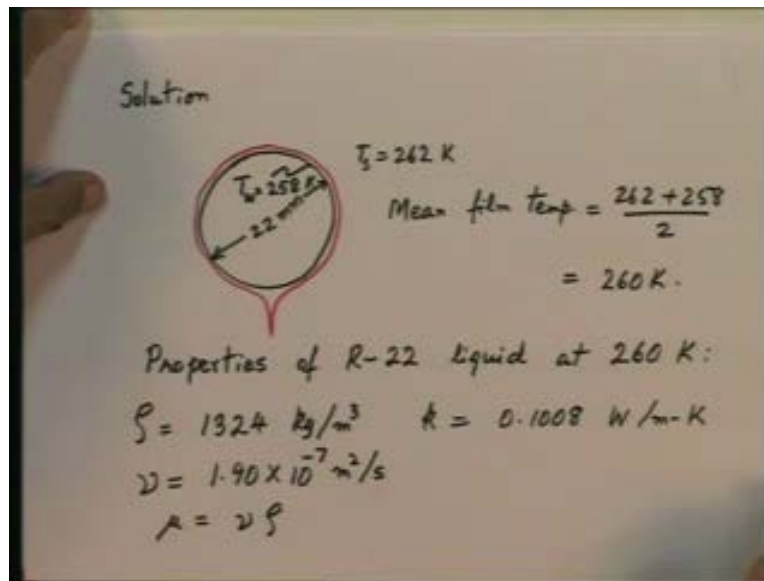 Solution
T_s = 262 K
T_w = 258 K
22 mm
Mean film temp = (262 + 258)/2
= 260 K.
Properties of R-22 liquid at 260 K:
ρ = 1324 kg/m³ k = 0.1008 W/m-K
ν = 1.90 × 10⁻⁷ m²/s
μ = νρ